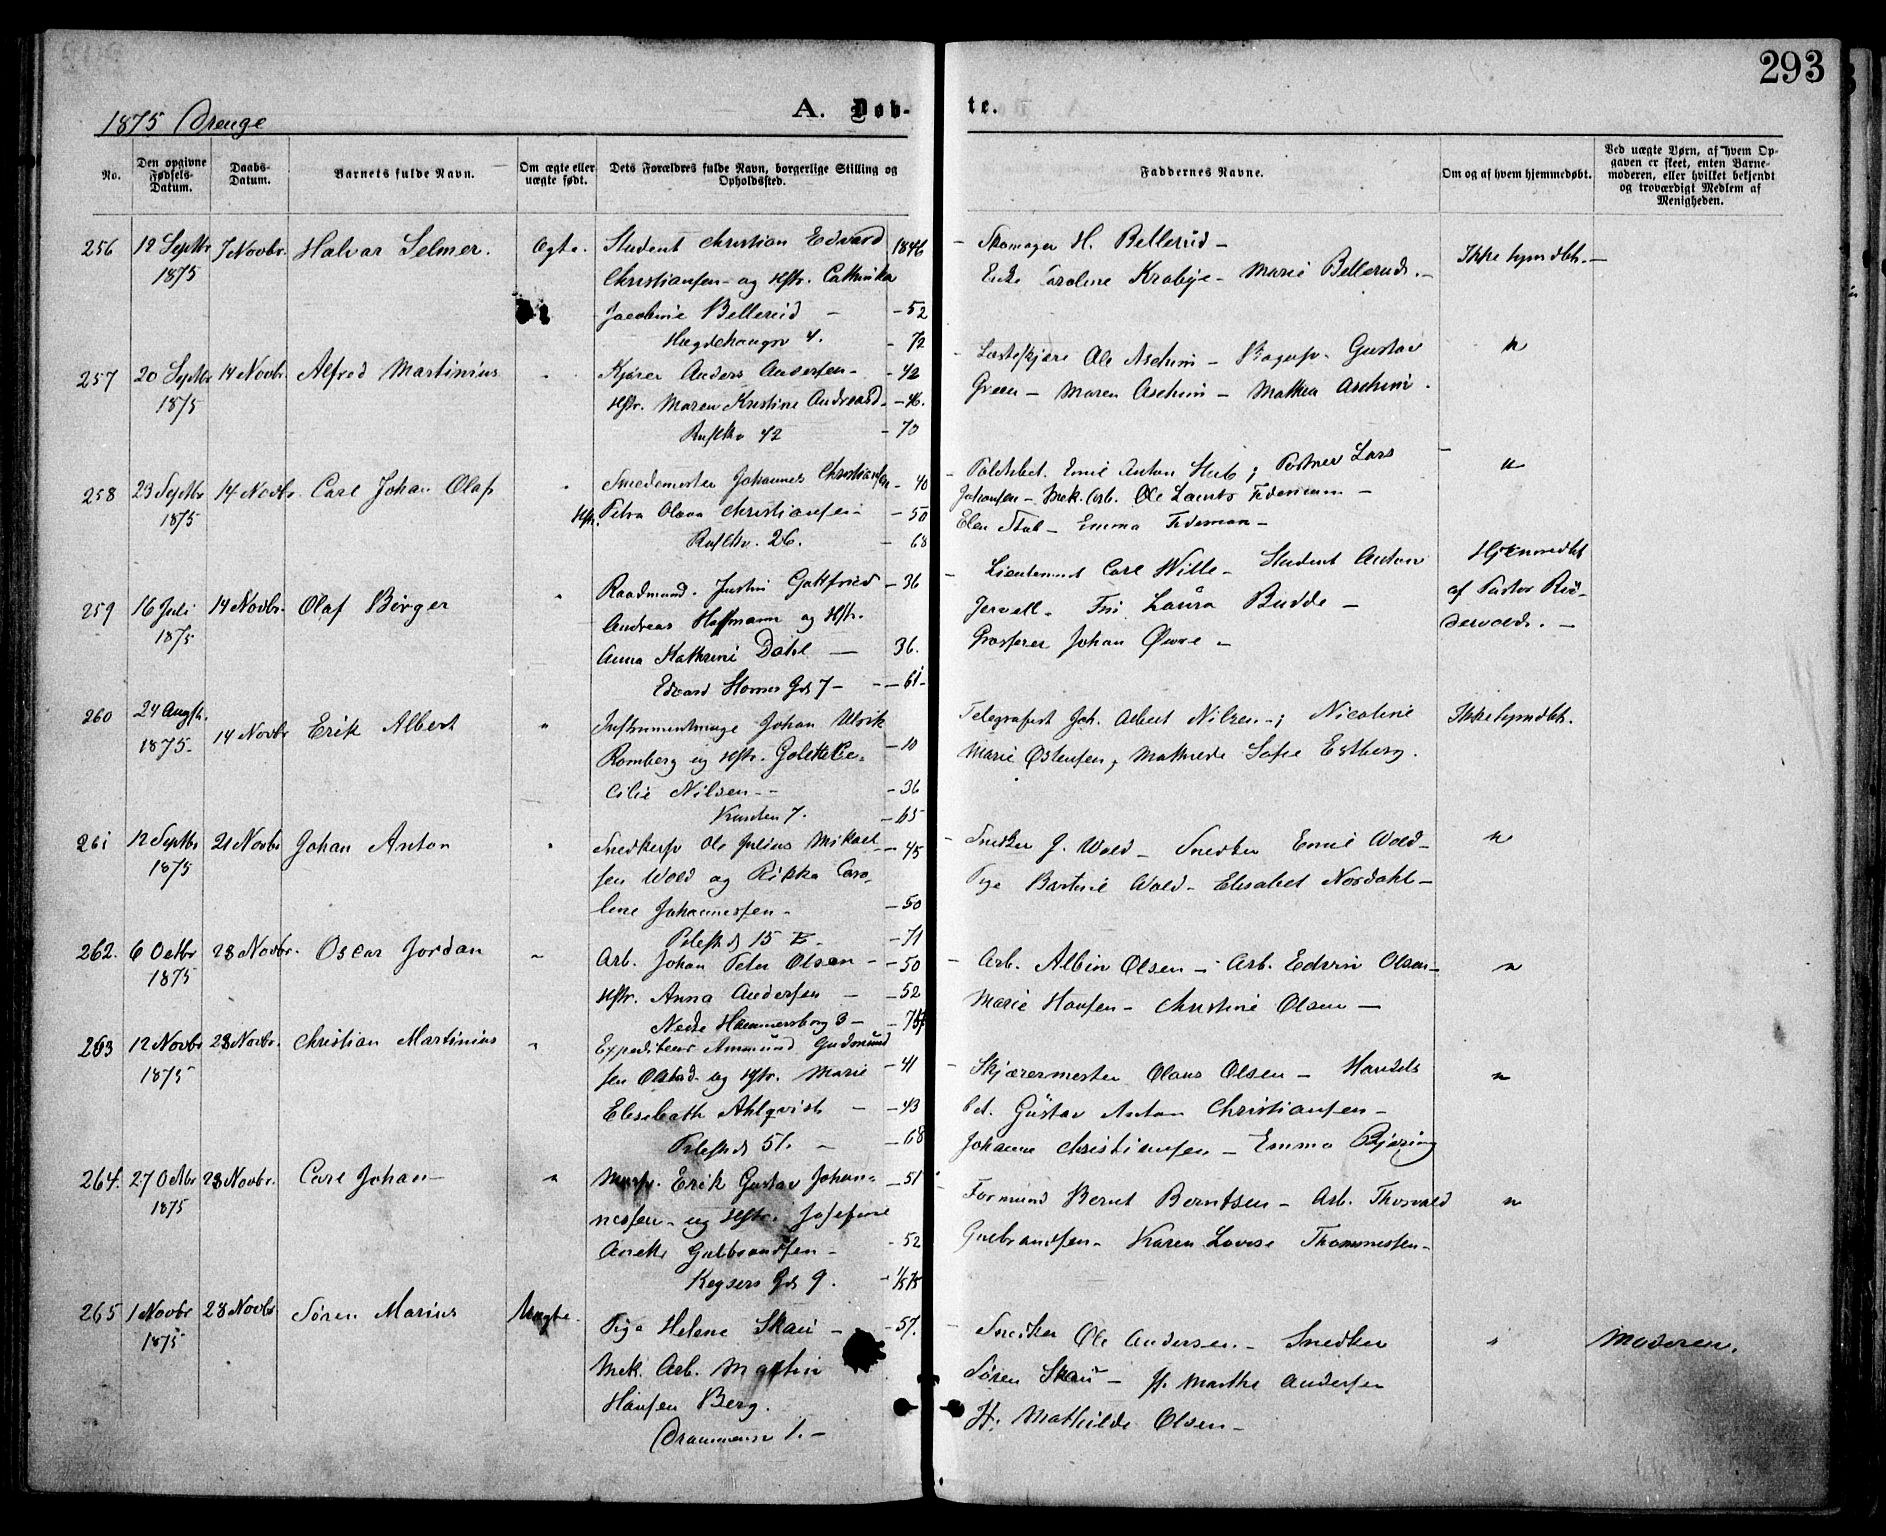 293
1875 Drenge
A. Døb-
te.
No.
Den opgivne Fødsels-Datum.
Daabs-Datum.
Barnets fulde Navn.
Om ægte eller uægte født.
Dets Forældres fulde Navn, borgerlige Stilling og Opholdssted.
Faddernes Navne.
Om og af hvem hjemmedøbt.
Ved uægte Børn, af hvem Op-
gaven er skeet, enten Barne-
moderen, eller hvilket bekjendt
og troværdigt Medlem af
Menigheden.
256 12 Septbr 7 Novbr. Halvar Selmer. Ægte. Student Christian Edvard 1846 – Skomager H. Bellerud – Ikke hjmdbt. –
1875 Christiansen – og Hstr. Cathinka Enke Caroline Krabye – Marie Bellerud. –
Jacobine Bellerud – – 52
Hægdehaugsv 4. – 72
257 20 Septbr 14 Novbr. Alfred Martinius " Kjører Anders Andersen – – 42 – Ole Aschim – Gustav "
1875 Hstr. Maren Kristine – 46. Green – Maren Aschim – Mathea Aschim.
Rusltkv 42 – 73
258 23 Septbr 14 Novbr. Carl Johan Olaf " Smedemester Johannes Christiansen – 40 – Emil Anton ; Lars "
1875 Hstr. Petra Olava Christiansen – – 50 Johansen – Mek. Arb. Ole –
Rusltkv. 26. – 68 Elen – Emma –
259 16 Juli 14 Novbr. Olaf Birger " Raadmand. Justin Gottfried – 36 – Lieutenant Carl Wille – Student Anton Hjemmedbt
1875 Andreas Hoffmann og Hstr. Jervell – Frk Laura Budde – af Pastor Rud-
Anna Kathrine Dahl – 36. Grosserer Johan – dervold. –
Edvard Storms Gd 7 – – 61 –
260 24 Augst. 14 Novbr Erik Albert " Instrumentmage Johan Ulrik Telegrafist Joh. Albert Nilsen –; Nicoline Ikke hjmdbt.
1875. Romberg og Hstr. – 10 Marie Østensen, Mathilde Sofie Estberg.
cilie Nilsen – – – 36
7. – 65
261 12 Septbr 21 Novbr Johan Anton " Snedkersv Ole Julius Mikael – 45 – Snedker J. Wold – Snedker Emil Wold – "
1875 sen Wold og Rikka Caro- Pige Wold – Elisabet Nordahl –
line Johannesen – – 50
Pilestd 15 – 71
262. 6 Octbr 28 Novbr. Oscar Jordan " Arb. Johan Peter Olsen – – 50 – Arb. Albin Olsen – Arb. Edvin Olsen – "
1875 Hstr. Anna Andersen – – 52 Marie Hansen – Christine Olsen –
Nedre Hammersborg 3 –
263 12 Novbr 28 Novbr. Christian Martinius " Expediteur Ammund Gudmund
1875 sen Olstad og Hstr. Marie – 41 – Skjærermester Olaus Olsen – Handels "
Elisabeth Ahlqvist – – 43 bet. Gustav Anton Christiansen –
Pilestd 51. – – 68 Johanne Christiansen – Emma Bjøring
264. 27 Octbr 28 Novbr. Carl Johan – " Mursv. Erik Gustav Johan- – 51 Formand Bernt Berntsen – Arb. Thorvald "
1875 nessen – og Hstr. Josefine Gulbrandsen – Karen Lovise Thommesen –
Anette Gulbrandsen – – 52
Keysers Gd 9.
265 1 Novbr 28 Novbr. Søren Marius Uægte. Pige Helene Skau – – 57. – Snedker Ole Andersen – Snedker " Moderen.
1875 Mek. Arb. Martin Søren Skau – H. Marthe Andersen
Hansen Berg. H. Mathilde Olsen –
Drammensv 1. –